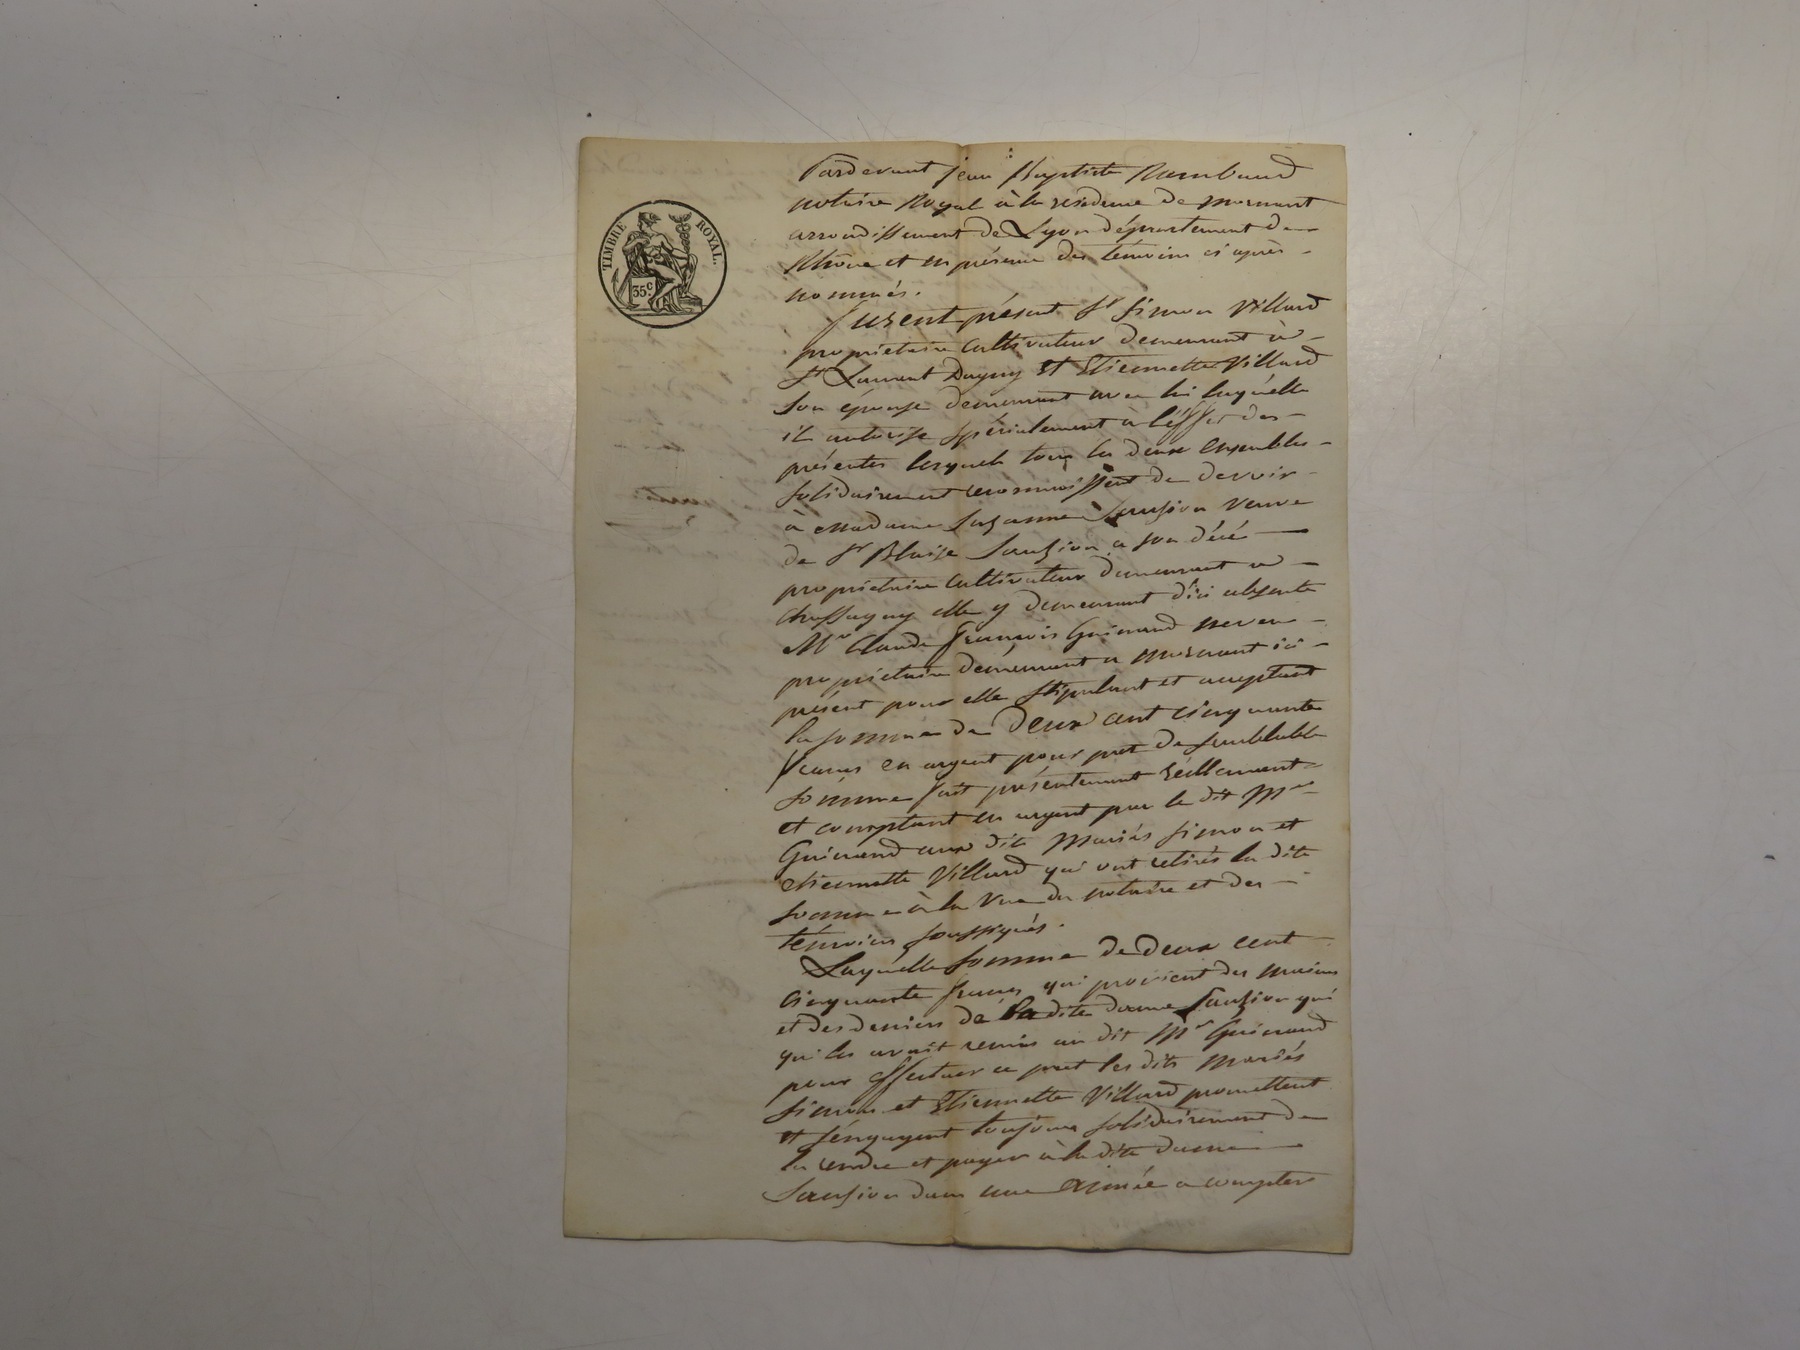 TIMBRE ROYAL.
35c
Pardevant jean Baptiste Rambaud
notaire Royal à la residence de mornant
arrondissement de Lyon département du
Rhône et en présence des témoins ci après
nommés.
furent présent Sr simon Villard
proprietaire Cultivateur demeurant à
St Laurent Dagny Et Etiennette Villard
son épouse demeurant avec lui laquélle
il autorise spécialement à l'éffet des
présentes lesquels tous les deux ensembles
solidairement reconnoissent de devoir
à Madame Suzanne veuve
de Sr Blaise a son décé
propriétaire Cultivateur demeurant a
chassagny elle y demeurant d'ici absente
Mr Claude François Guinand neveu
propriétaire demeurant a mornant ici
présent pour elle stipulant et acceptant
la somme de deux cent cinquante
francs en argent pour pret de semblable
somme fait présentement réellement
et comptant en argent par le dit Mr
Guinand aux dits Mariés simon et
etiennette Villard qui ont retirés la dite
somme à la vue du notaire et des
témoins soussignés.
Laquélle somme de deux cent
cinquante francs qui provient des mains
et des deniers de la dite dame qui
qui les avait remis au dit Mr Guinand
pour effectuer ce pret les dits mariés
simon et Etiennette Villard promettent
et s'éngagent toujours solidairement de
la rendre et payer à la dite dame
dans une année a compter